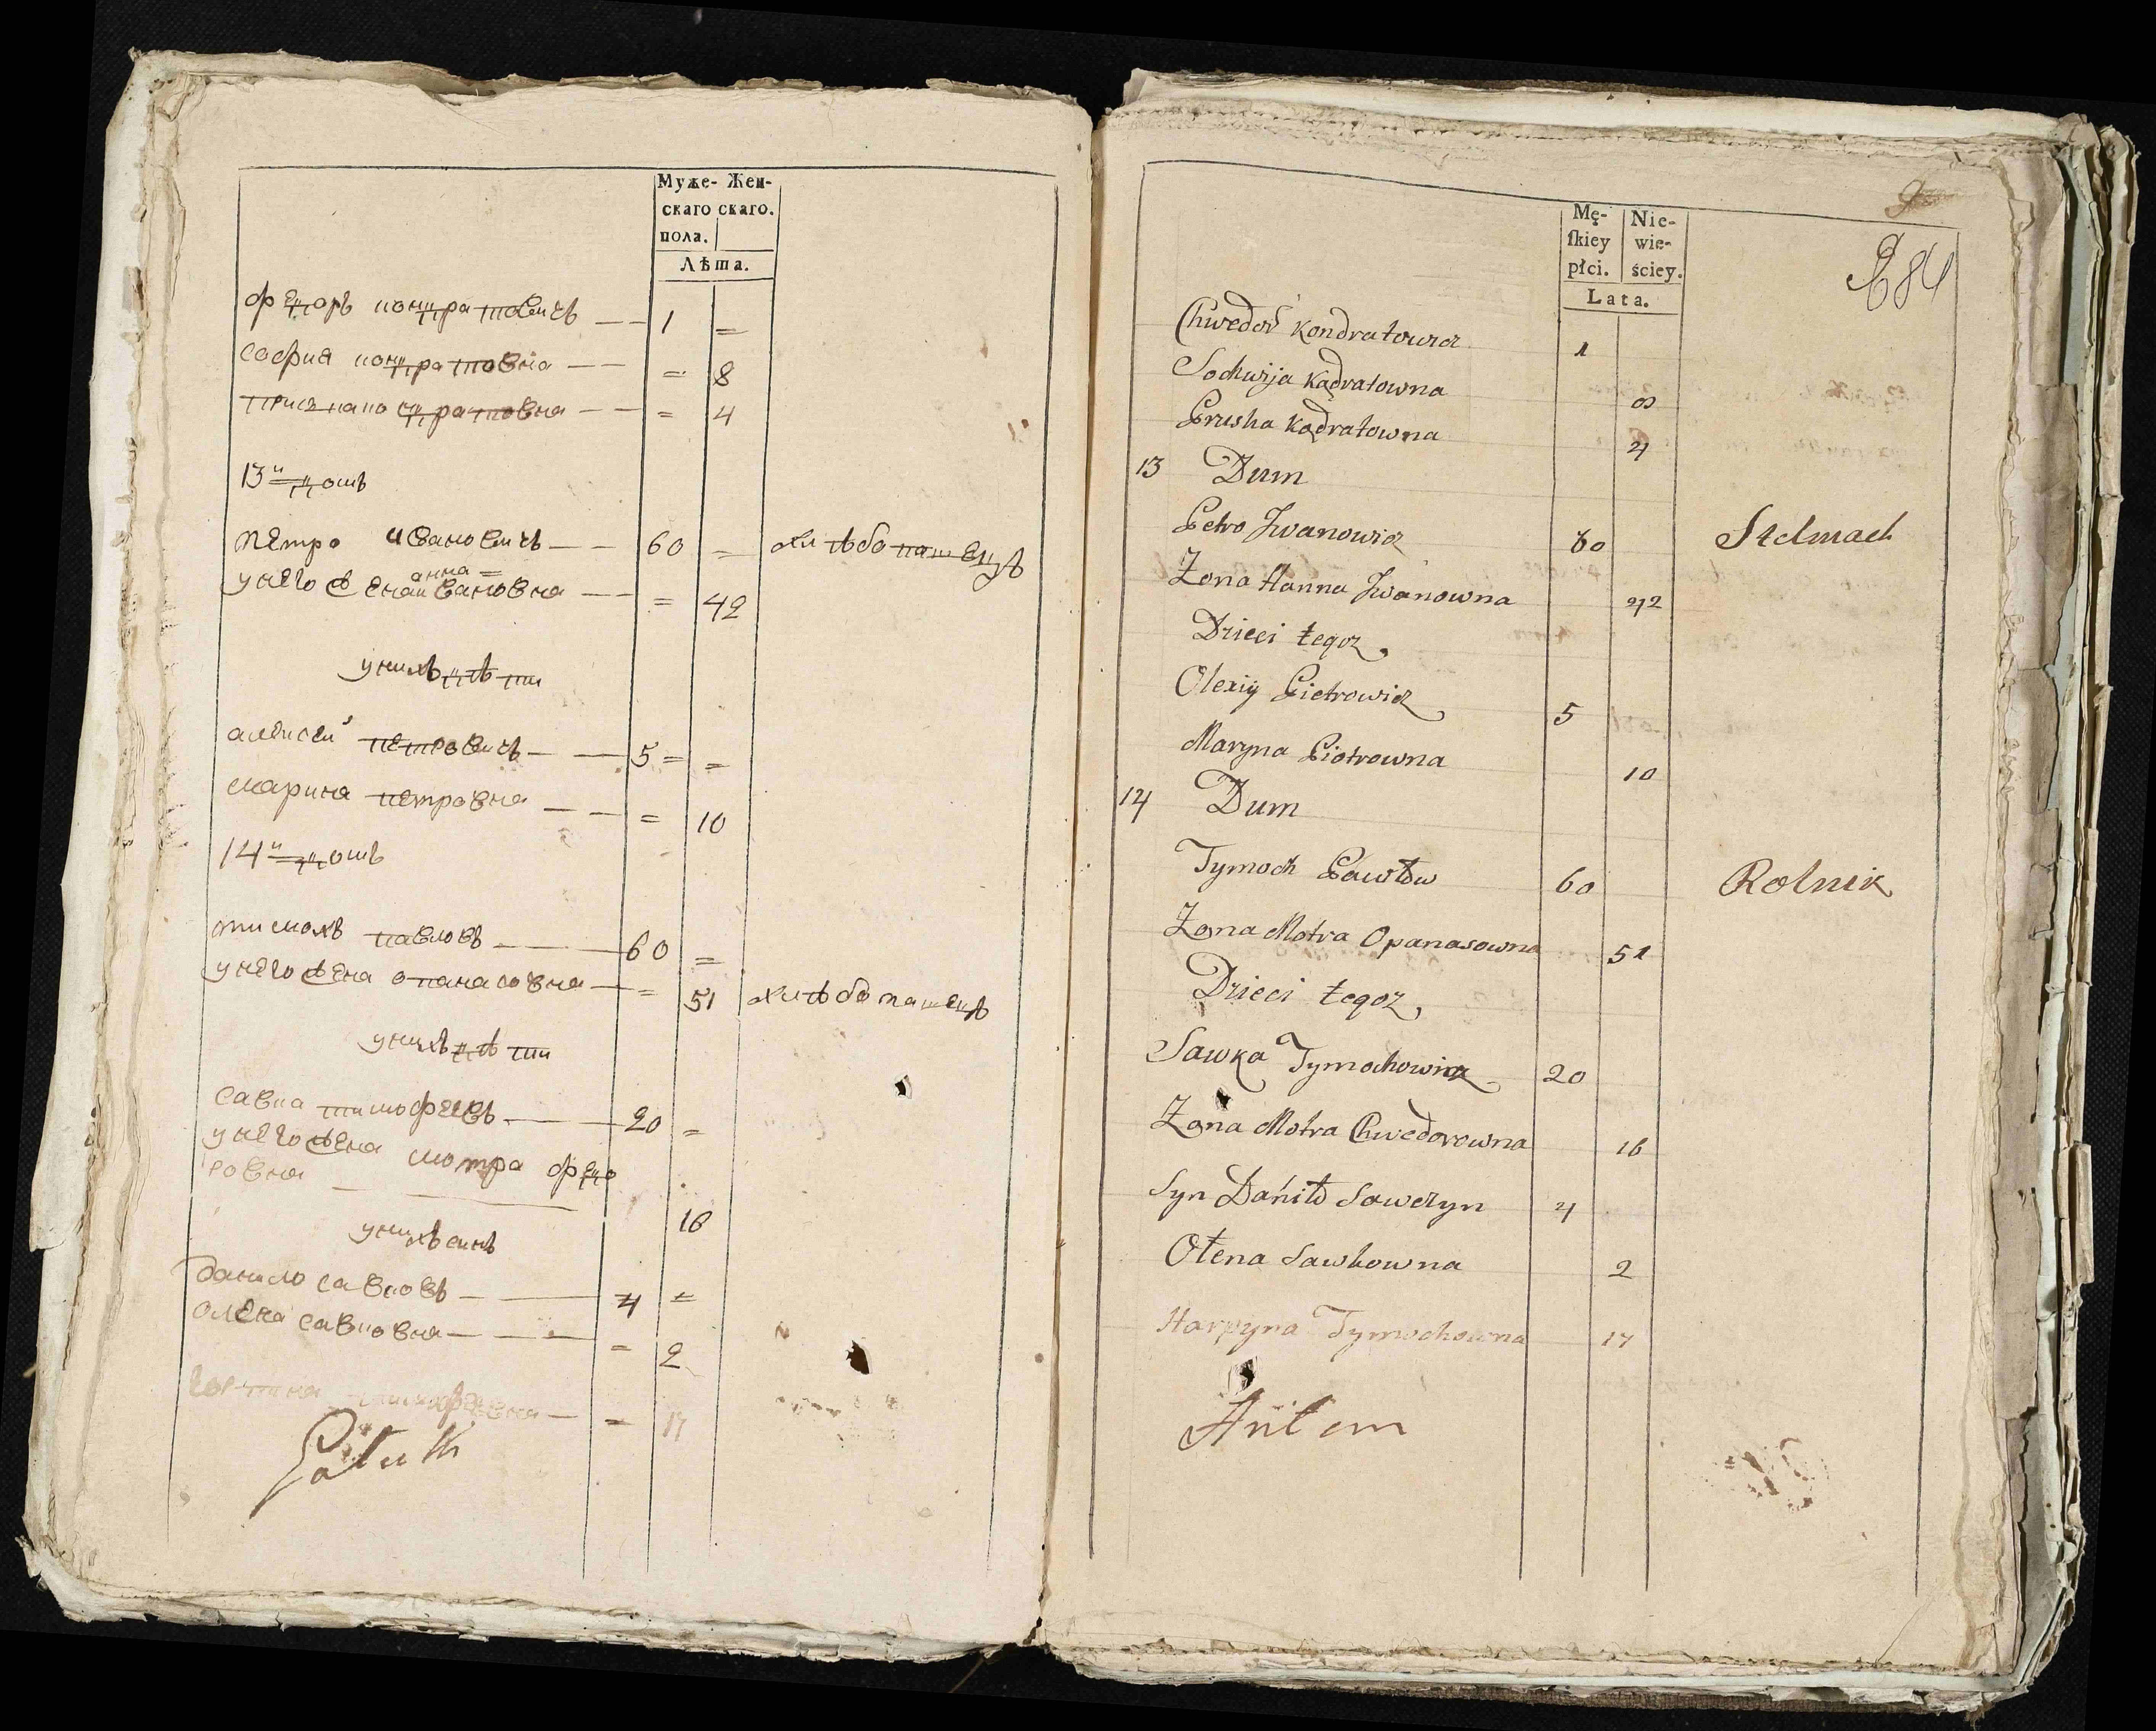 Муже- Жен-
скаго скаго.
пола.
Лѣта.
Федоръ кондратовичъ — 1 =
София кондратовна — = 8
= 4
13й домъ
Петро Ивановичъ — 60 = хлѣбопашецъ
анна =
у него жена ивановна — = 42
у нихъ дѣти
алексей петровичъ — 5 = =
марина петровна — = 10
14й домъ
тимохъ павловъ — 60 =
у него жена опанасовна — = 51 хлѣбопашецъ
у нихъ дѣти
савка тимофеевъ — 20 =
у него жена мотра федо
ровна — 16
у нихъ синъ
данило савковъ — 4 =
олена савковна — = 2
тимофеевна — = 17
9
284
Mę- Nie-
skiey wie-
płci. ściey.
Lata.
Chwedor Kondratowicz 1
Sochwija Kądratowna 8
Prusha Kądratowna 4
13 Dum
Petro Iwanowicz 60 Stelmach
Zona Hanna Iwanowna 42
Dzieci tegoz,
Olexiy Pietrowicz 5
Maryna Piotrowna 10
14 Dum
Tymoch Pawłow 60 Rolnik
Zona Motra Opanasowna 51
Dzieci tegoz,
Sawka Tymochowicz 20
Zona Motra Chwedorowna 16
Syn Daniło Sawczyn 4
Ołena Sawkowna 2
Harpyna Tymochowna 17